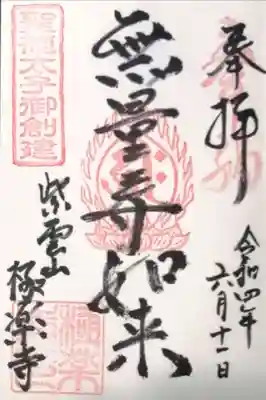 奉拝
令和四年六月十一日
無量寿如来
聖徳太子御創建
紫雲山
極楽寺